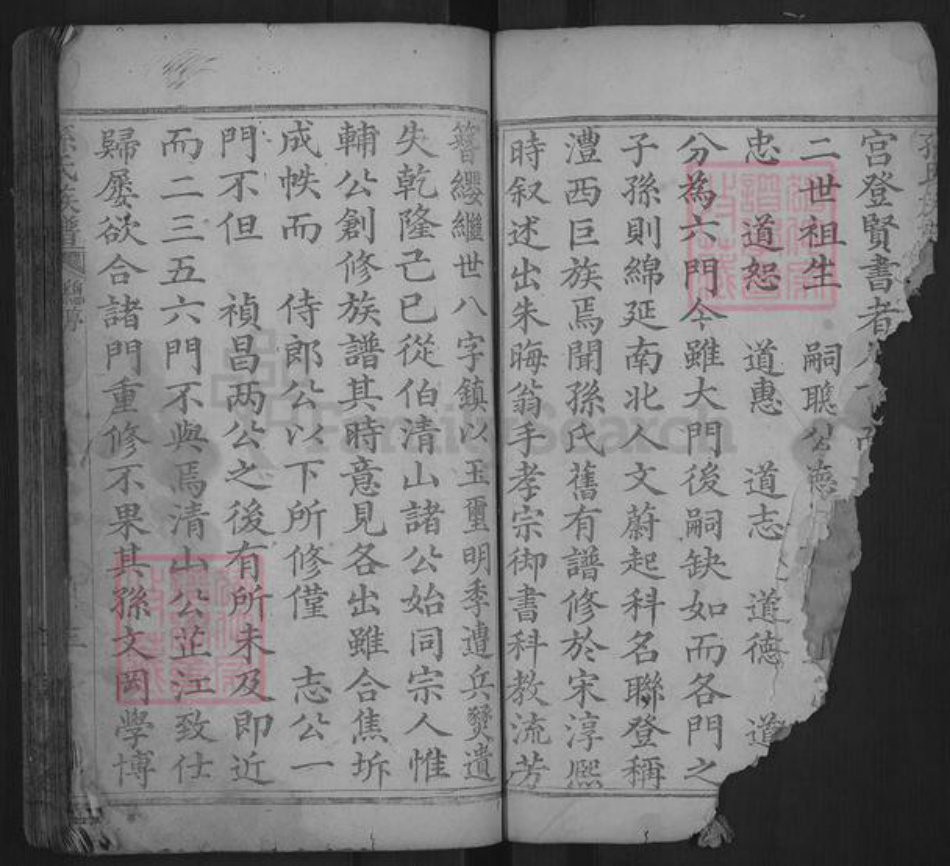 宮登賢書者
二世祖生 嗣聰公德
忠 道恕 道惠 道志 道德 道
分為六門今雖大門後嗣缺如而各門之
子孫則綿延南北人文蔚起科名聯登稱
澧西巨族焉聞孫氏舊有譜修於宋淳熙
時叙述出朱晦翁手孝宗御書科教流芳
簪纓繼世八字鎮以玉璽明季遭兵燹遺
失乾隆己巳從伯清山諸公始同宗人惟
輔公創修族譜其時意見各出雖合焦圻
成帙而 侍郎公以下所修僅 志公一
門不但 禎昌两公之後有所未及即近
而二三五六門不與焉清山公芷江致仕
歸屡欲合諸門重修不果其孫文岡學博
孫氏族譜
FamilySearch